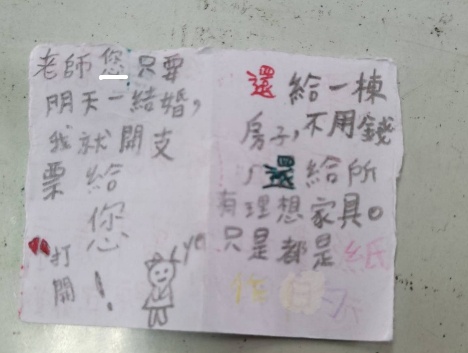 老師您只要
明天一結婚，
我就開支
票給
您！
打開
yA
還給一棟
房子，不用錢
，還給所
有理想家具。
只是都是紙
做的